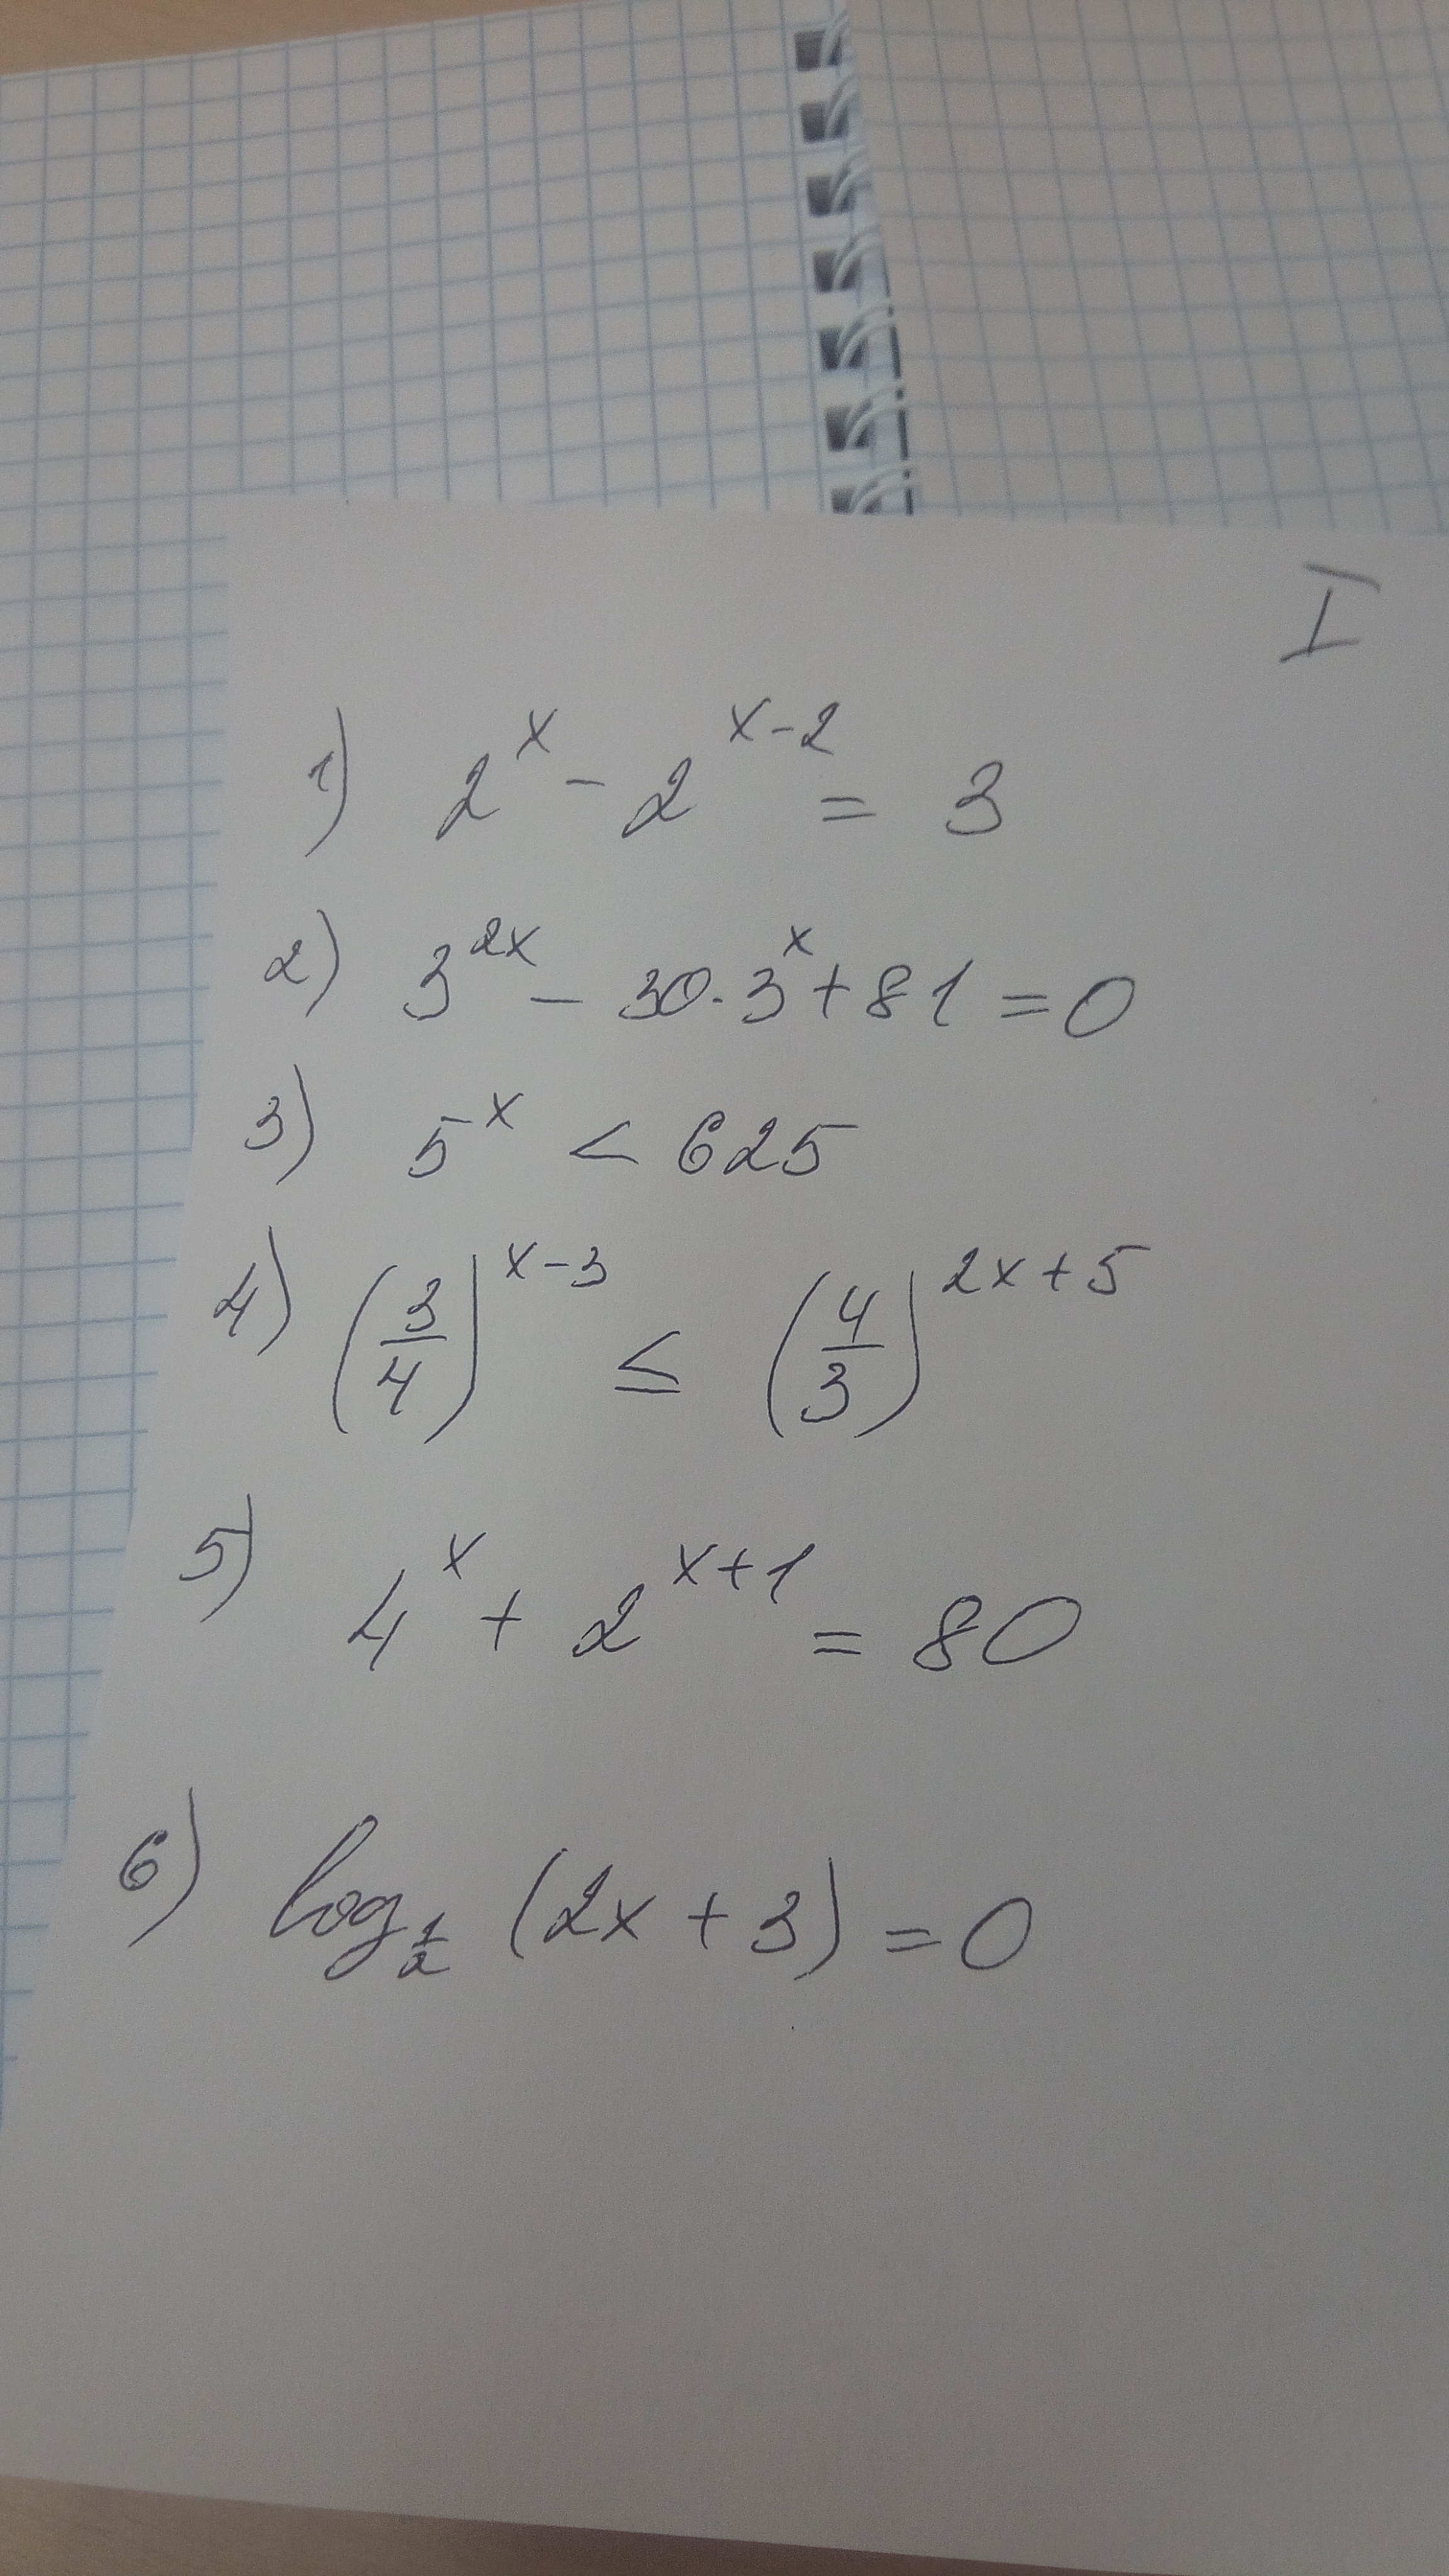 I
1) 2^x - 2^(x-2) = 3
2) 3^(2x) - 30·3^x + 81 = 0
3) 5^x < 625
4) (3/4)^(x-3) ≤ (4/3)^(2x+5)
5) 4^x + 2^(x+1) = 80
6) log_(1/2) (2x + 3) = 0